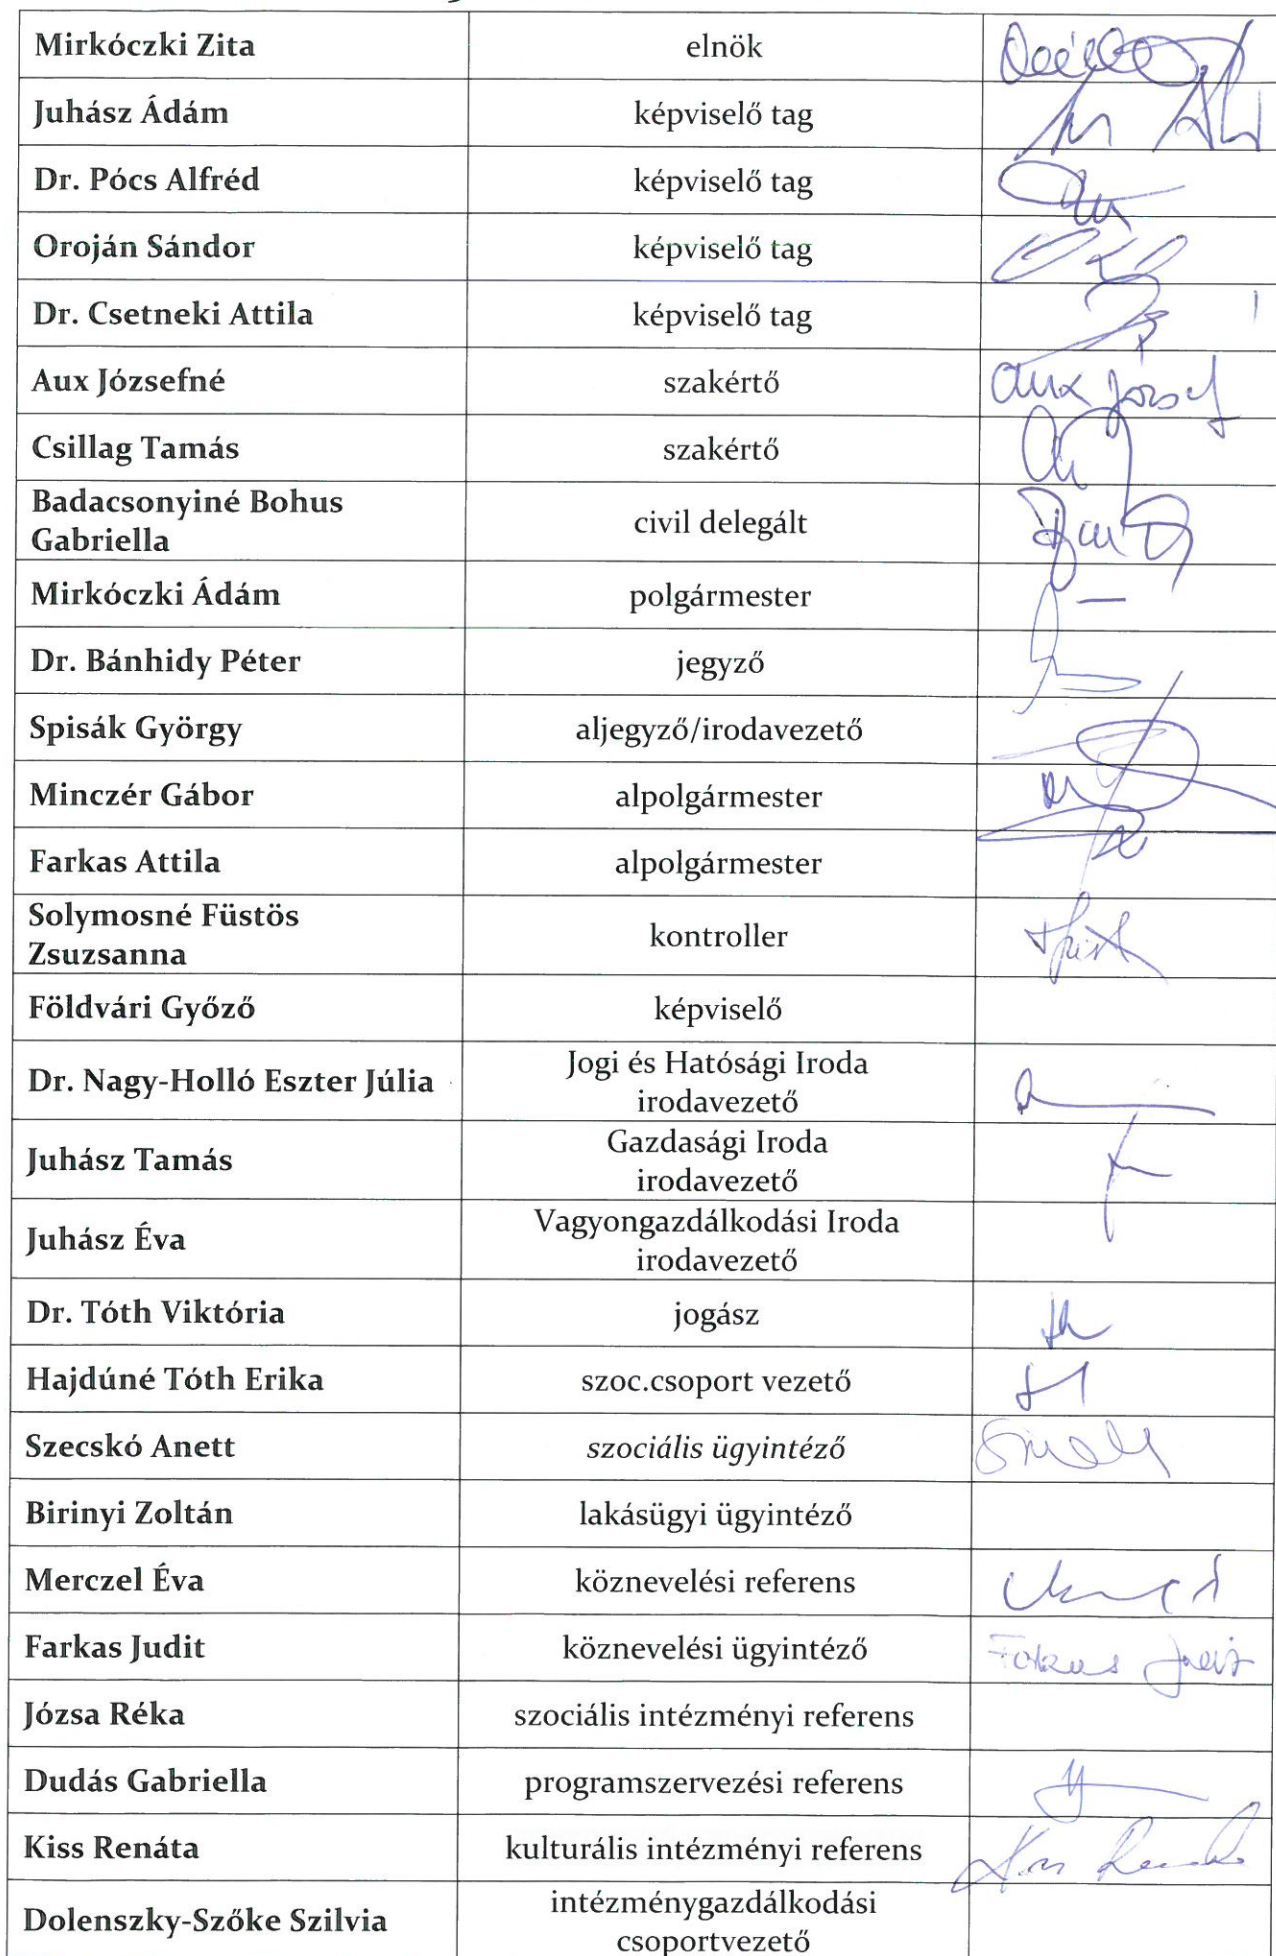 Mirkóczki Zita elnök
Juhász Ádám képviselő tag
Dr. Pócs Alfréd képviselő tag
Oroján Sándor képviselő tag
Dr. Csetneki Attila képviselő tag
Aux Józsefné szakértő Aux József
Csillag Tamás szakértő
Badacsonyiné Bohus
Gabriella
civil delegált
Mirkóczki Ádám polgármester –
Dr. Bánhidy Péter jegyző
Spisák György aljegyző/irodavezető
Minczér Gábor alpolgármester
Farkas Attila alpolgármester
Solymosné Füstös
Zsuzsanna
kontroller
Földvári Győző képviselő
Dr. Nagy-Holló Eszter Júlia
Jogi és Hatósági Iroda
irodavezető
Juhász Tamás
Gazdasági Iroda
irodavezető
Juhász Éva
Vagyongazdálkodási Iroda
irodavezető
Dr. Tóth Viktória jogász
Hajdúné Tóth Erika szoc.csoport vezető
Szecskó Anett szociális ügyintéző
Birinyi Zoltán lakásügyi ügyintéző
Merczel Éva köznevelési referens
Farkas Judit köznevelési ügyintéző Farkas Judit
Józsa Réka szociális intézményi referens
Dudás Gabriella programszervezési referens
Kiss Renáta kulturális intézményi referens Kiss Renáta
Dolenszky-Szőke Szilvia
intézménygazdálkodási
csoportvezető